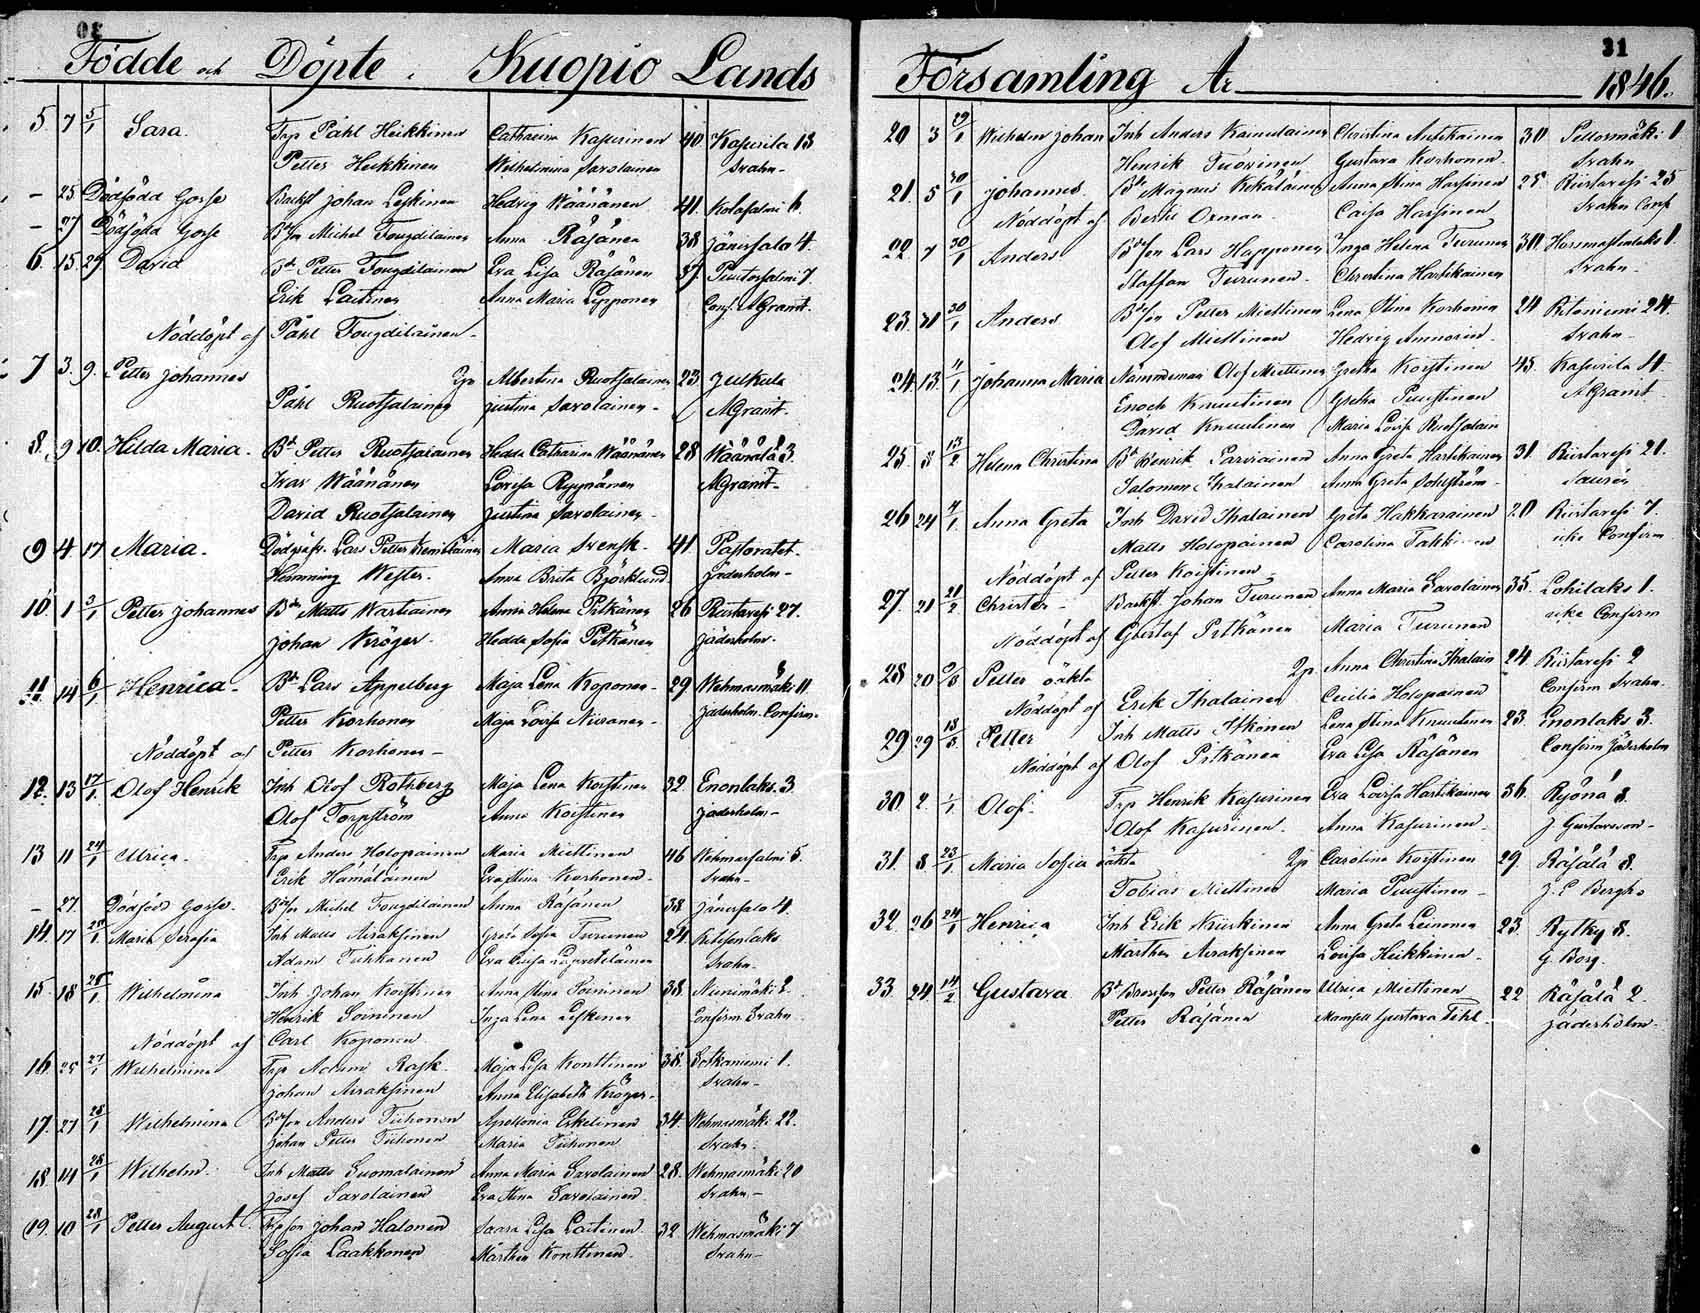 30
Födde och Döpte i Kuopio Lands
5. 7 5/1 Sara. Trp Påhl Heikkinen Catharina Kasurinen 40. Kasurila 13
Petter Heikkinen Wilhelmina Savolainen Svahn
– 25 Dödfödd Gosse Johan Leskinen Hedvig Wäänänen 41. Kolasalmi 6.
– 27 Dödfödd Gosse Michel Fougdilainen Anna Räsänen 38 Jänissalo 4.
6. 15 29 David Bd Petter Fougdilainen Eva Lisa Räsänen 37. 7.
Erik Laitinen Anna Maria Lipponen Conf. AGranit.
Nöddöpt af Påhl Fougdilainen
7 3. 9. Petter Johannes Albertina Ruotsalainen 23. Julkula
Påhl Ruotsalainen Justina Savolainen AGranit.
8. 9 10. Hilda Maria. Bd Petter Ruotsalainen Hedda Catharina Wäänänen 28 Wäänälä 3.
Ivar Wäänänen Lovisa Ryynänen AGranit
David Ruotsalainen Justina Savolainen
9 4 17 Maria. Lars Petter Maria Svensk 41 Pastoratet
Hemming Wester. Anna Brita Björklund Jäderholm
10. 1 3/1 Petter Johannes Matts Wartiainen Anna Helena Pitkänen 26 Riistavesi 27.
Johan Kröger. Hedda Sofia Pitkänen Jäderholm.
11 14 6/1 Henrica Bd Lars Appelberg Maja Lena Koponen 29 Wehmasmäki 11
Petter Korhonen Maja Loisa Niiranen Jäderholm. Confirm.
Nöddöpt af Petter Korhonen
12. 13 17/1 Olof Henrik Inh Olof Rothberg Maja Lena Koistinen 32 Enonlaks. 3
Olof Torpström Anna Koistinen Jäderholm
13 11 24/1 Ulrica. Trp Anders Holopainen Maria Miettinen 46 Wehmersalmi 5.
Erik Hämäläinen Eva Stina Korhonen Svahn
– 27. Dödfödd Gosse. Michel Fougdilainen Anna Räsänen 38 Jänissalo 4.
14. 17 Maria Serafia Inh Matts Airaksinen Greta Sofia Turunen 24.
Adam Tiihkanen Eva Svahn
15. 18 Wilhelmina Inh Johan Koistinen Anna Stina Toininen 38. Nunimäki 2
Henrik Soininen Inga Lena Leskinen Confirm Svahn
Nöddöpt af Carl Koponen
16. 25 27/1 Wilhelmina Trp Adam Rask. Maja Lisa Konttinen 38. Sotkaniemi 1.
Johan Airaksinen Anna Elisabeth Kröger Svahn
17. 27 28/1 Wilhelmina Anders Tiihonen Apollonia Eskelinen 34. Wehmasmäki 22.
Johan Petter Tiihonen Maria Tiihonen Svahn
18. 14 28/1 Wilhelm. Inh Matts Suomalainen Anna Maria Savolainen 28. Wehmasmäki 20
Josef Savolainen Eva Stina Savolainen Svahn
19. 10 28/1 Petter August Johan Halonen Saara Lisa Laitinen 32 Wehmasmäki 7
Sofia Laakkonen Marthen Konttinen. Svahn
31
Församling År 1846.
20 3 29/1 Wilhelm Johan Inh Anders Kainulainen Christina Antikainen 30 Pellosmäki 1.
Henrik Tuovinen Gustava Korhonen Svahn
21. 5 30/1 Johannes. Magnus Kekäläinen Anna Stina Hassinen 25. Riistavesi 25
Nöddöpt af Bertil Orman Caisa Hassinen Svahn Conf
22. 7 30/1 Anders Lars Happonen Inga Helena Turunen 30.
Staffan Turunen. Christina Hartikainen Svahn
23. 31 30/1 Anders Petter Miettinen Lena Stina Korhonen 24 Ritoniemi 24.
Olof Miettinen Hedvig Ammonen Svahn
24. 13. Johanna Maria Nämndeman Olof Miettinen Gretha Koistinen 45. Kasurila 4.
Enoch Knuutinen Gretha Puustinen AGranit
David Knuutinen Maria Loisa Ruotsalain
25. 8 13/2 Helena Christina Bd Henrik Parviainen Anna Greta Hartikainen 31. Riistavesi 21.
Salomon Ihalainen Anna Greta Sohlström
26 24 Anna Greta Inh David Ihalainen Greta Hakkarainen 20 Riistavesi 7.
Matts Holopainen Carolina Takkinen icke Confirm
Nöddöpt af Petter Koistinen
27. 21 21/2 Christer Johan Turunen Anna Maria Savolainen 35. Lohilaks 1.
Nöddöpt af Gustaf Pitkänen Maria Turunen icke Confirm
28 20 Petter oäkta Anna Christina Ihalain 24. Riistavesi 2
Nöddöpt af Erik Ihalainen Cecilia Holopainen Confirm Svahn.
29 29 18/3 Petter Inh Matts Itkonen Lena Stina Knuutinen 23. Enonlaks 3.
Nöddöpt af Olof Pitkänen Eva Lisa Räsänen Confirm Jäderholm
30. 2. 1/1 Olof. Trp Henrik Kasurinen Eva Lovisa Hartikainen 36. Ryönä 8.
Olof Kasurinen. Anna Kasurinen. J Gustavson
31. 8 23/1 Maria Sofia oäkta Carolina Koistinen 29. Räsälä 8.
Tobias Miettinen Maria Puustinen J. E Bergh
32. 26 24/1 Henrica Inh Erik Niskinen Anna Greta Leinonen 23. Rytky 8.
Marthen Airaksinen Lovisa Heikkinen. G. Borg.
33. 24 14/2 Gustava Petter Räsänen Ulrica Miettinen 22 Räsälä 2.
Petter Räsänen Mamsell Gustava Jäderholm